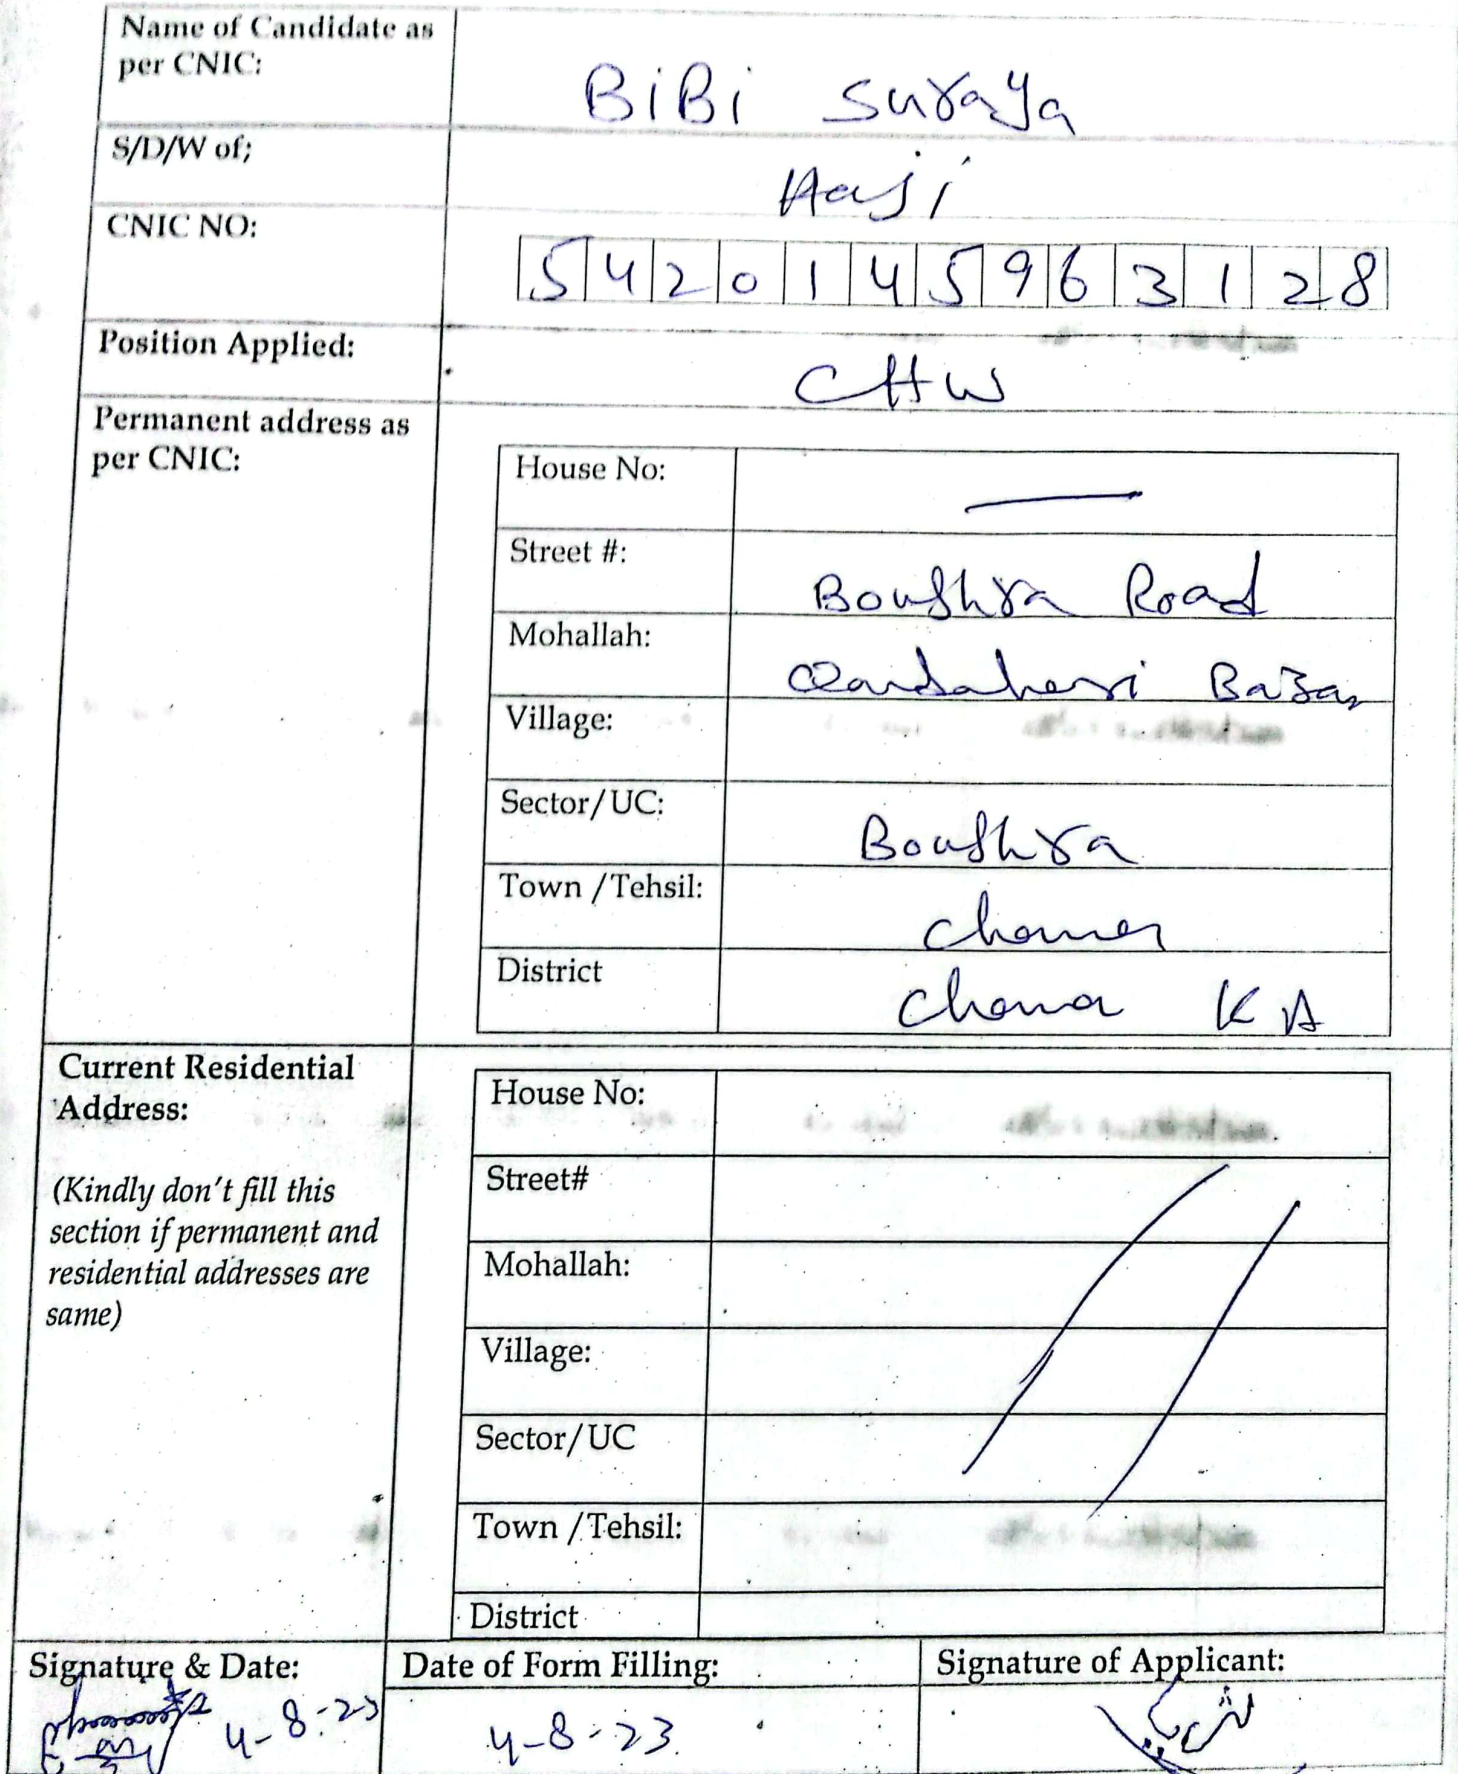 Name of Candidate as
per CNIC:
BiBi Suraya
S/D/W of;
Haji
CNIC NO:
5 4 2 0 1 4 5 9 6 3 1 2 8
Position Applied:
CHW
Permanent address as
per CNIC:
House No: —
Street #: Boughra Road
Mohallah: Qandahari Bazar
Village:
Sector/UC: Boughra
Town /Tehsil: Chaman
District Chama K A
Current Residential
Address:
(Kindly don't fill this
section if permanent and
residential addresses are
same)
House No:
Street#
Mohallah:
Village:
Sector/UC
Town /Tehsil:
District
Signature & Date:
4-8-23
Date of Form Filling:
4-8-23
Signature of Applicant: